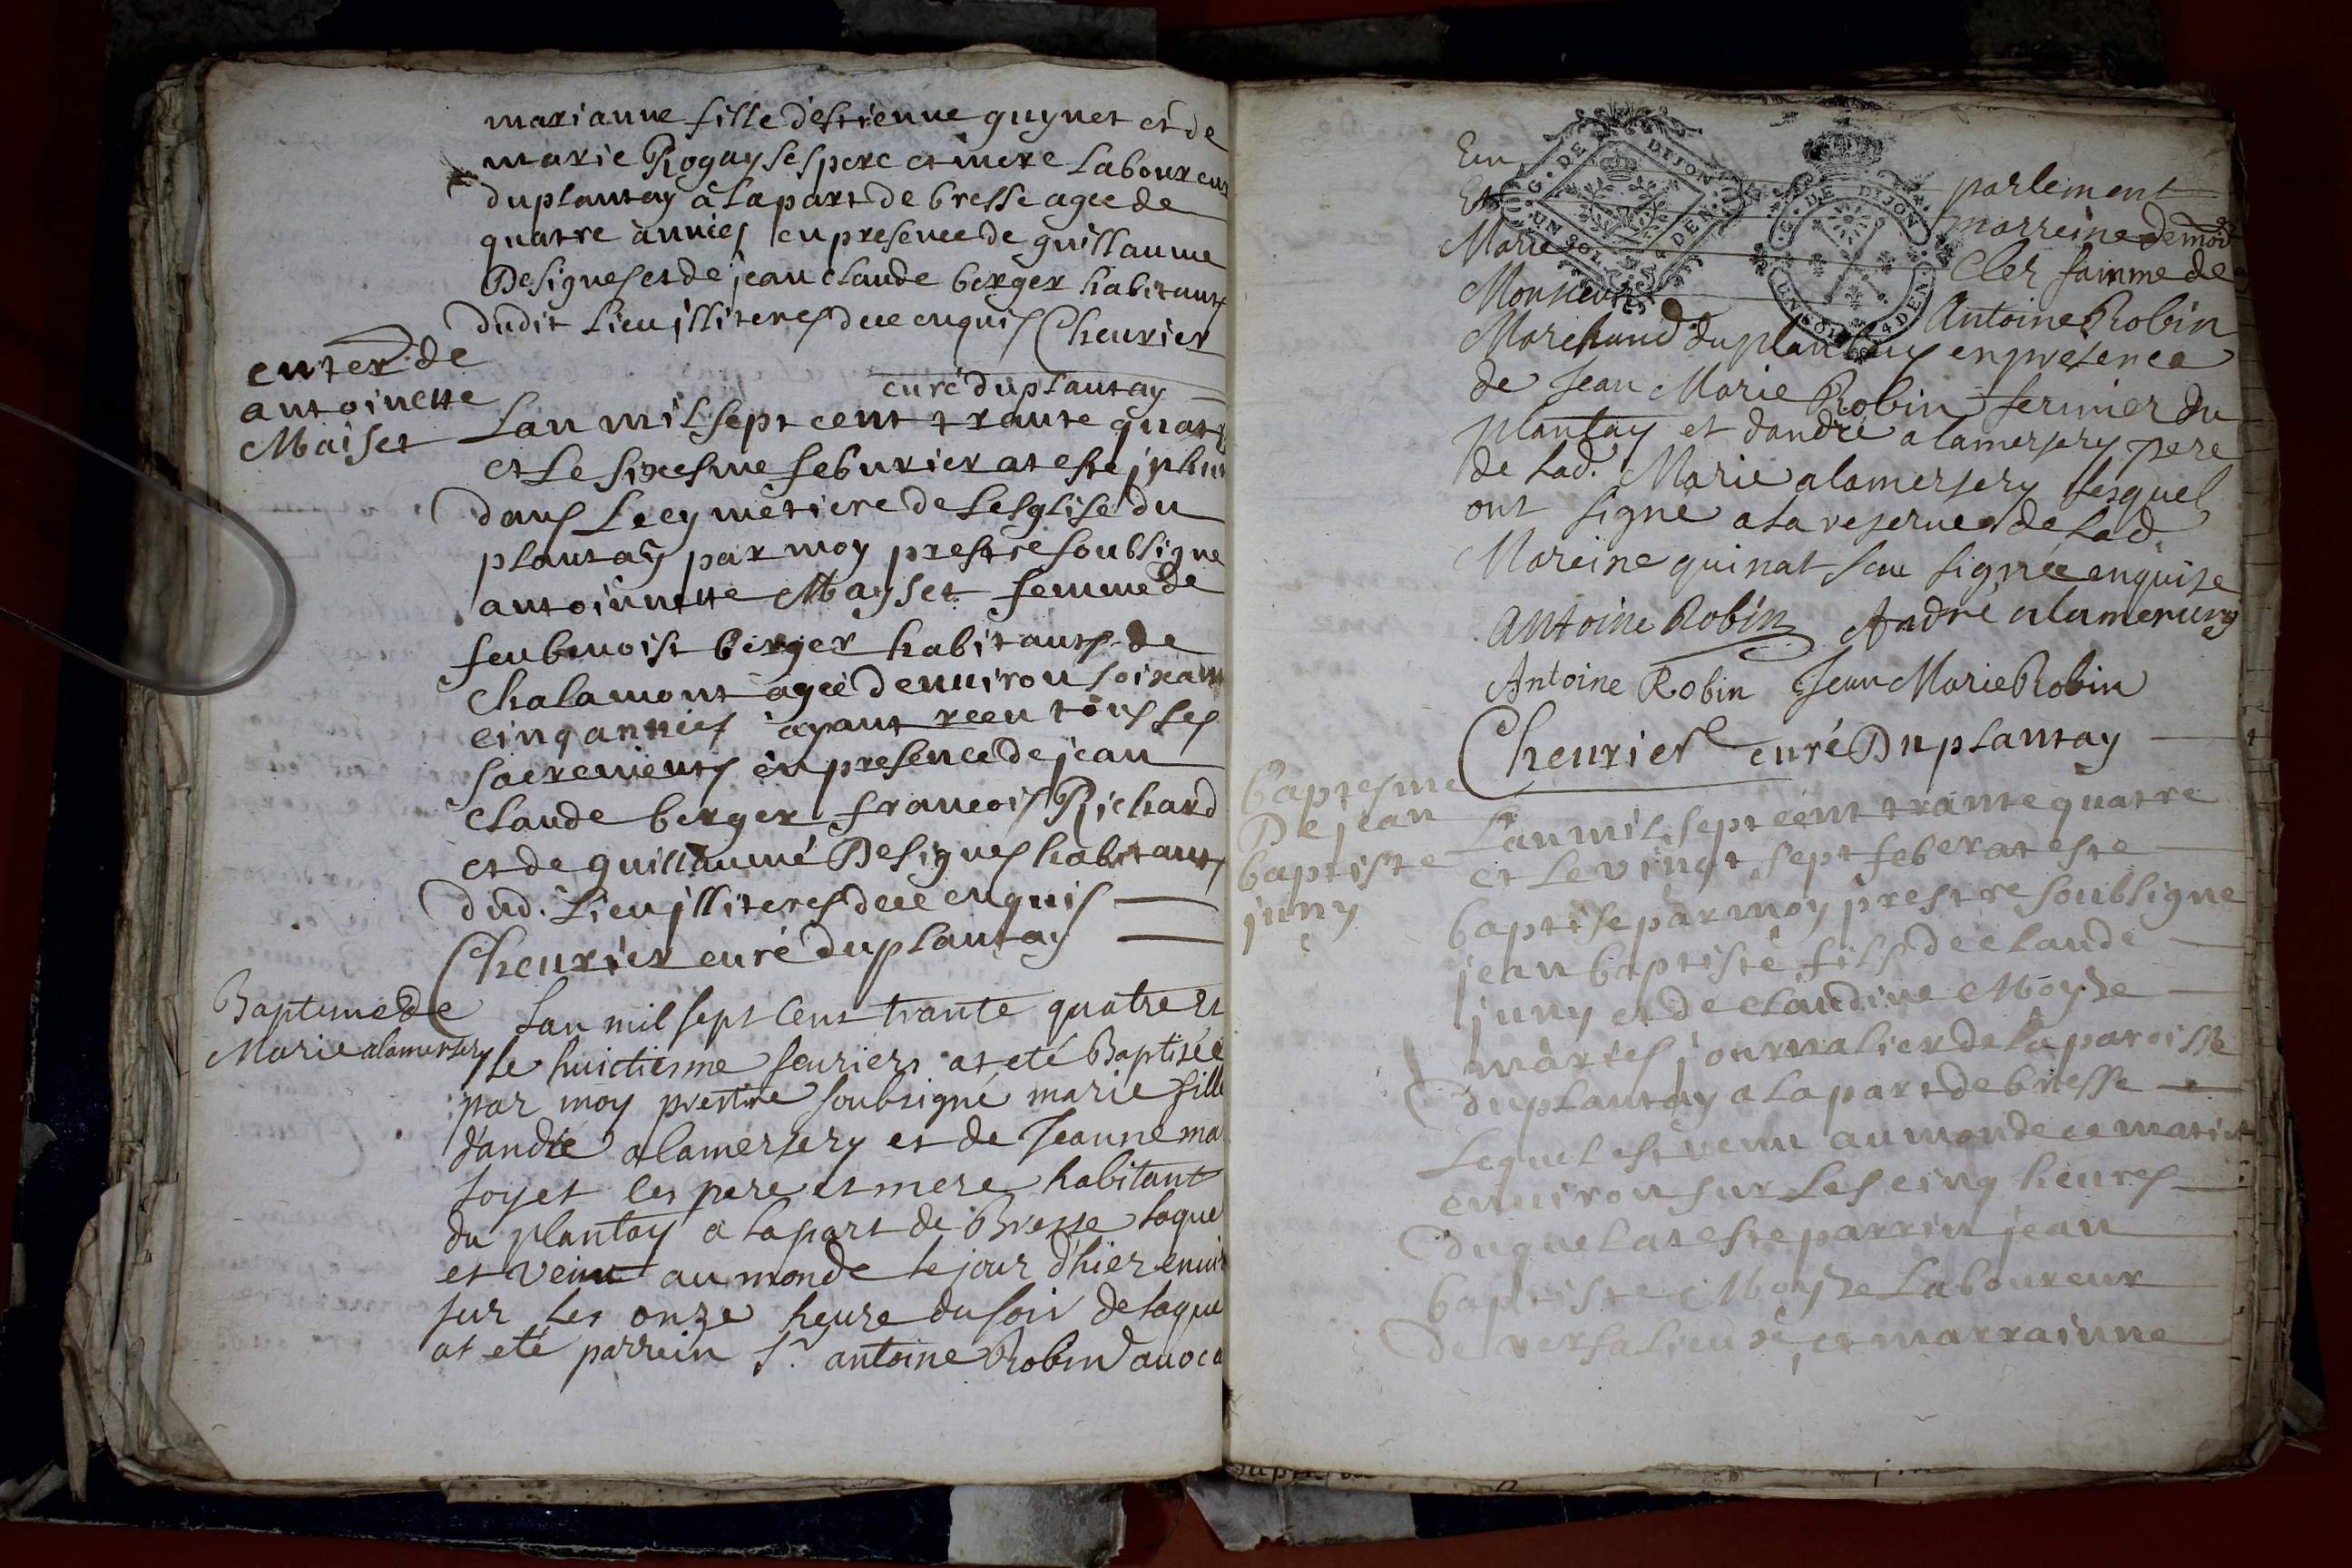 marianne fille d'estienne guynet et de
marie Rogay ses pere et mere Laboureur
du plantay à la part de bresse agée de
quatre années en presence de guillaume
Designes et de jean claude berger habitants
dudit Lieu jlliteres de ce enquis Cheurier
curé du plantay
enter. de
antoinette
Maiset
Lan mil sept cent trante quatr
et Le sixesme feburier at esté jnhu
dans Le cymetiere de Lesglise du
plantay par moy prestre soubsigne
antoinnette Mayset femme de
feu benoist berger habitants de
chalamont agée denuiron soixant
cinq années ayant receu tous les
sacrements en presence de jean
claude berger francois Richard
et de guillaume Designes habitants
dud. Lieu jlliteres de ce enquis
Cheurier curé du plantay
Bapteme de
Marie alamersery
Lan mil sept Cent trante quatre et
le huictiesme feurier at eté Baptisée
par moy prestre soubsigné marie fille
d'andre alamersery et de Jeanne ma
soyet les pere et mere habitant
du plantay a la part de Bresse laque
et venu au monde le jour d'hier enuir
sur les onze heure du soir de laque
at eté parrein Sr. antoine Robin auoca
En
Et
Marie
Monsieur
parlement
marreine demoi
Cler famme de
Antoine Robin
G. DE DIJON
UN SOL 4 DEN.
G. DE DIJON
UN SOL 4 DEN
Marchand du plantay en presence
de Jean Marie Robin fermier du
plantay et dandré alamersery pere
de Lad. Marie alamersery lesquel
ont signé a la reserue de Lad.
Mareine qui nat seu signée enquise
Antoine Robin André alamersery
Antoine Robin Jean Marie Robin
Cheurier curé Du plantay
baptesme
De jean
baptiste
juny
Lan mil sept cent trante quatre
et Le vingt sept feber at esté
baptise par moy prestre soubsigne
jean baptiste fils de claude
juny et de claudine Moyse
mariés journalier de la paroisse
du plantay a la part de bresse
Lequel est venu au monde ce matin
enuiron sur Les cinq heures
duquel at esté parrin jean
baptiste Moyse Laboureur
de versalieu et marrainne